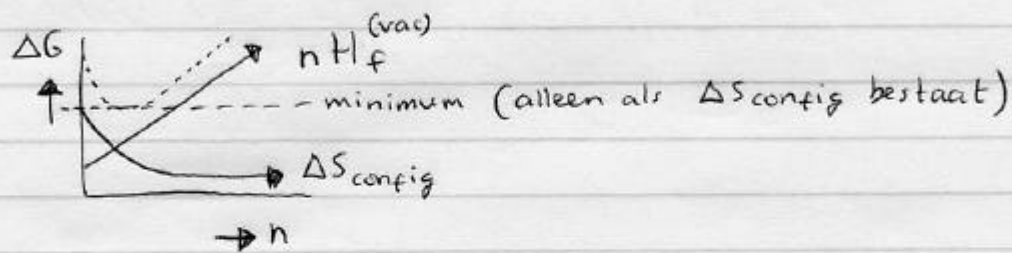 ΔG
n H_f^(vac)
minimum (alleen als ΔS_config bestaat)
ΔS_config
→ n